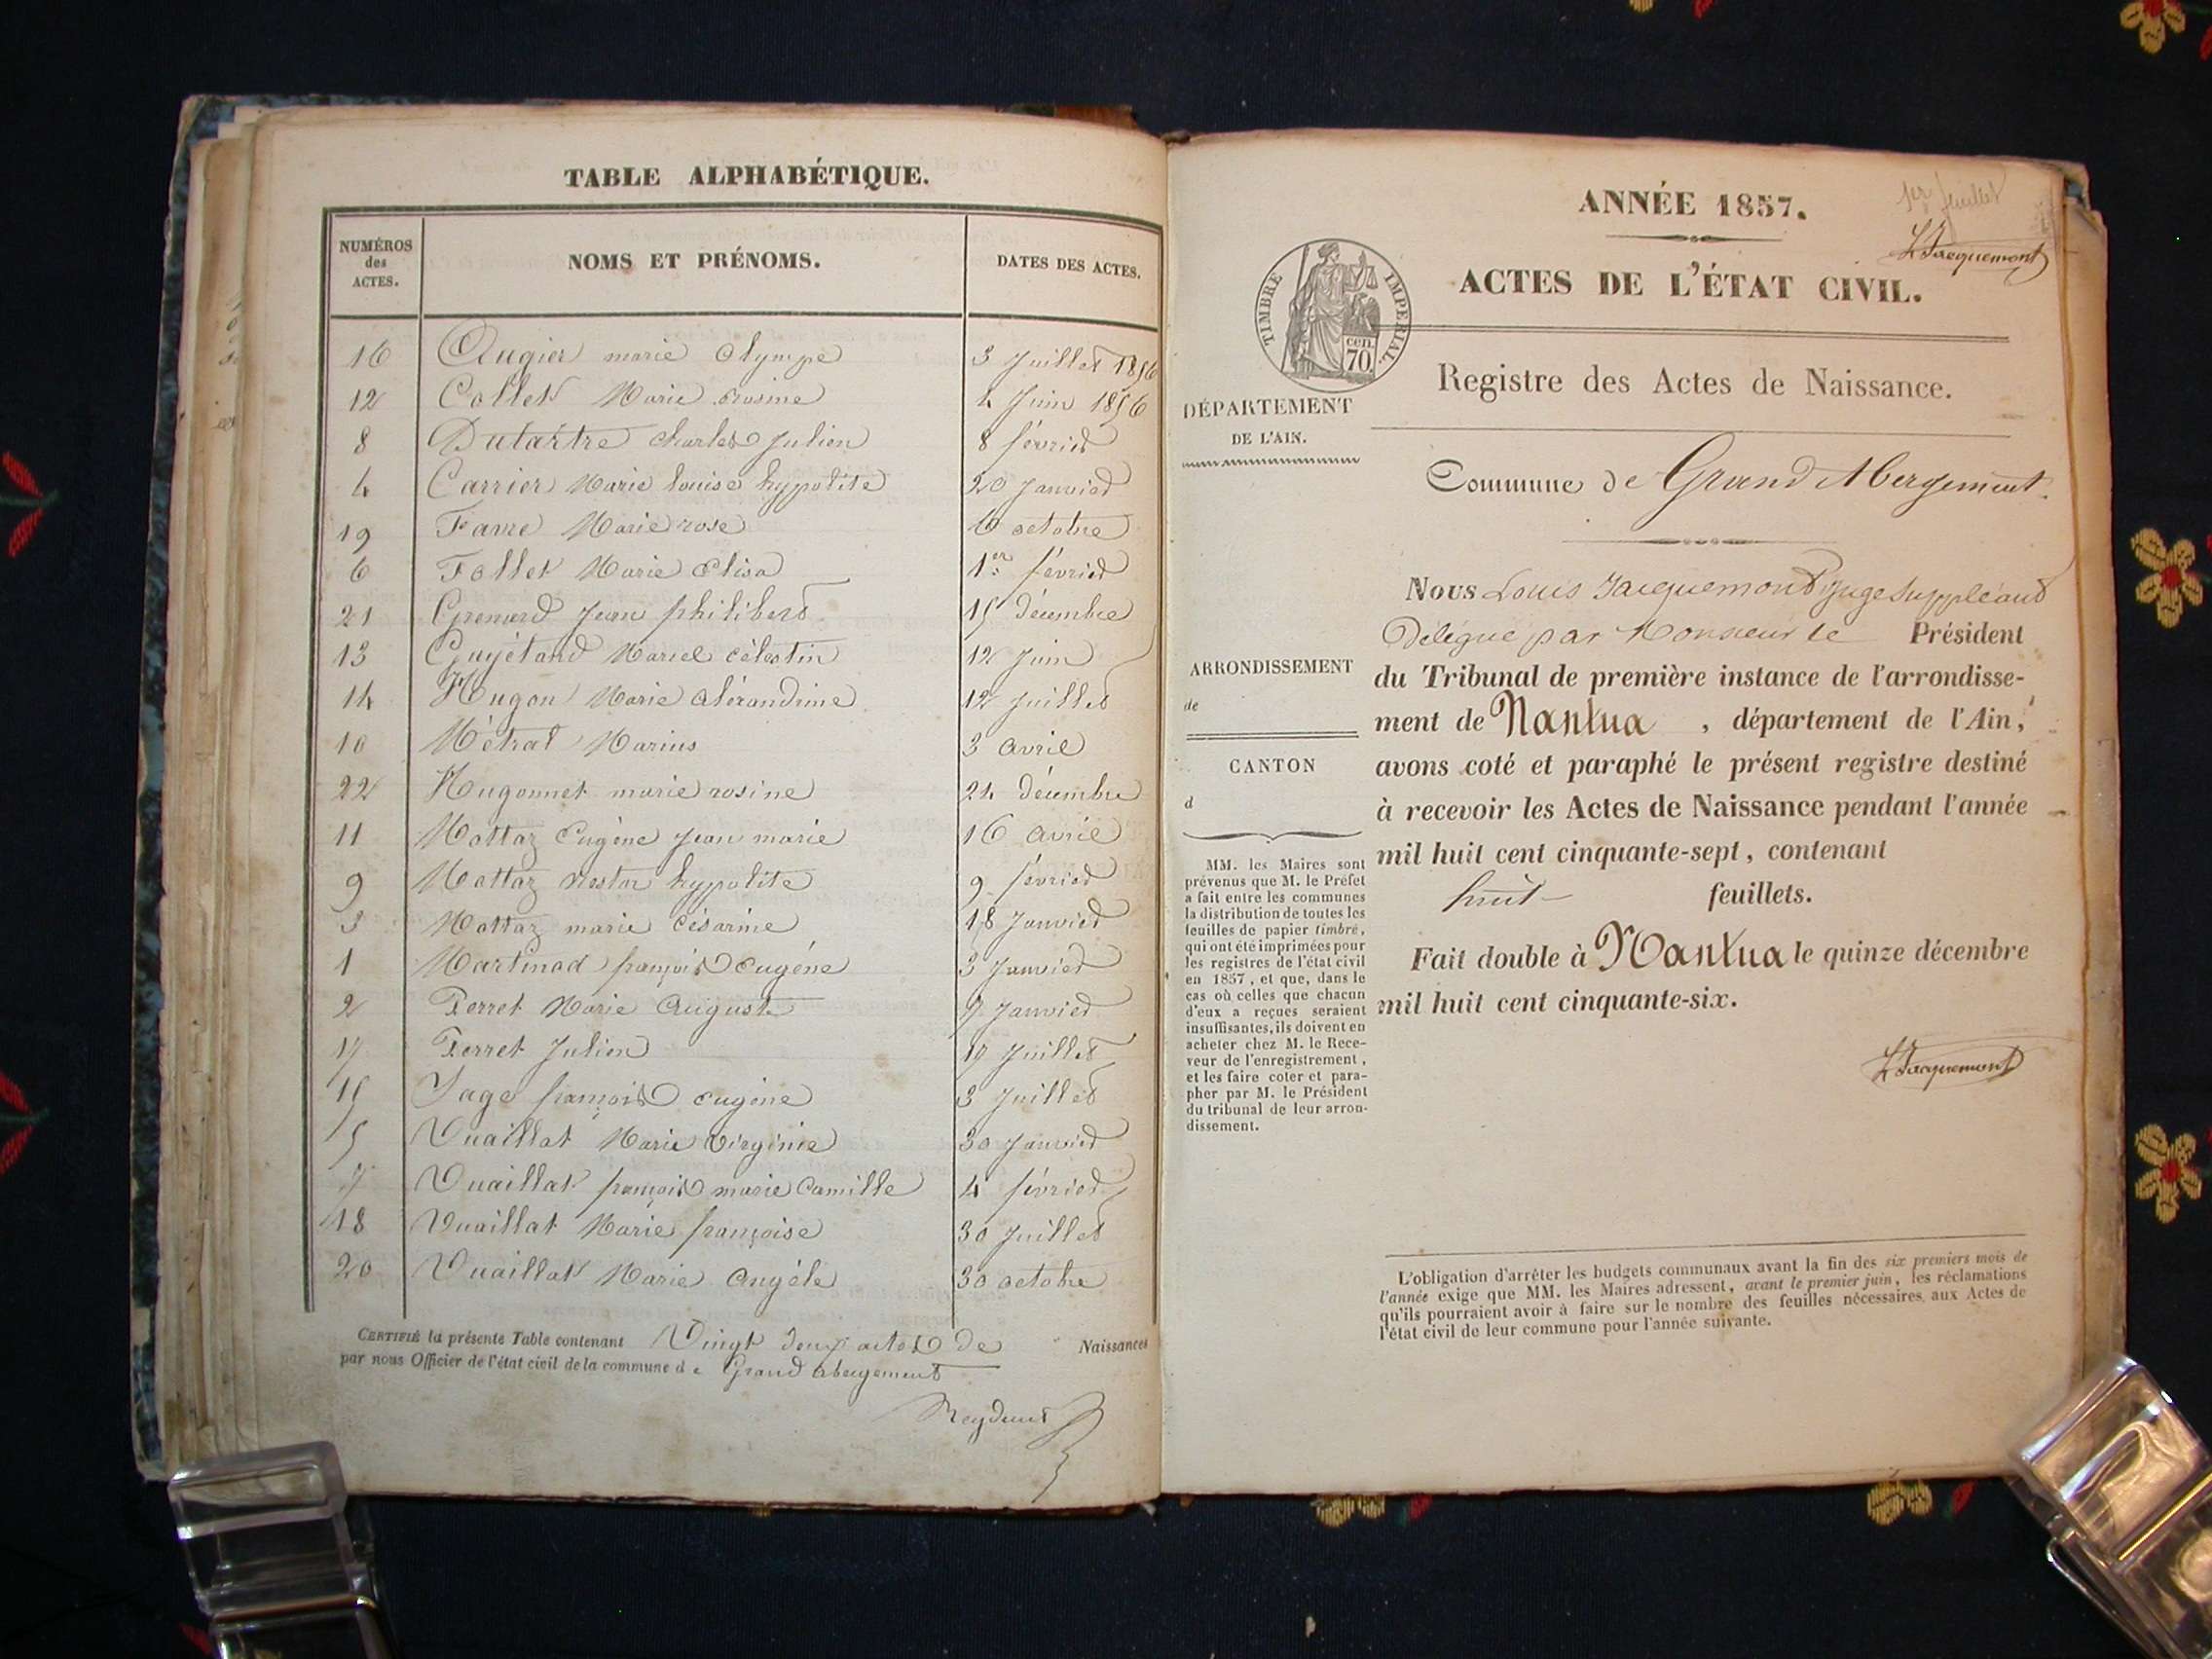 TABLE ALPHABÉTIQUE.
NUMÉROS des ACTES. NOMS ET PRÉNOMS. DATES DES ACTES.
16 Augier marie olympe 3 Juillet 1856
12 Collet Marie rosine 4 Juin 1856
8 Dutartre charles Julien 8 février
4 Carrier Marie louise hyppolite 20 Janvier
19 Favre Marie rose 6 octobre
6 Follet Marie Elisa 1er février
21 Grenard Jean philibert 15 décembre
13 Guyétand Marcel célestin 12 Juin
14 Hugon Marie alexandrine 12 Juillet
10 Métrat Marius 3 avril
22 Hugonnet marie rosine 24 décembre
11 Mottaz Eugène Jean marie 16 avril
9 Mottaz Nestor hyppolite 9 février
3 Mottaz marie Césarine 18 Janvier
1 Martinod françois Eugène 3 Janvier
2 Perret Marie Auguste 7 Janvier
17 Perret Julien 17 Juillet
15 Sage françois Eugène 3 Juillet
5 Vuaillat Marie Virginie 30 Janvier
7 Vuaillat françois marie Camille 4 février
18 Vuaillat Marie françoise 30 Juillet
20 Vuaillat Marie Angèle 30 octobre
CERTIFIÉ la présente Table contenant Vingt deux actes de Naissances
par nous Officier de l'état civil de la commune de Grand abergement
ANNÉE 1857.
1er feuillet
L Jacquemont
ACTES DE L'ÉTAT CIVIL.
TIMBRE IMPERIAL.
cen. 70
Registre des Actes de Naissance.
DÉPARTEMENT
DE L'AIN.
Commune de Grand Abergement.
Nous Louis Jacquemont Juge Suppléant
Délégué par Monsieur le Président
du Tribunal de première instance de l'arrondisse-
ment de Nantua , département de l'Ain,
avons coté et paraphé le présent registre destiné
à recevoir les Actes de Naissance pendant l'année
mil huit cent cinquante-sept, contenant
huit feuillets.
Fait double à Nantua le quinze décembre
mil huit cent cinquante-six.
L Jacquemont
ARRONDISSEMENT
de
CANTON
d
MM. les Maires sont
prévenus que M. le Préfet
a fait entre les communes
la distribution de toutes les
feuilles de papier timbré,
qui ont été imprimées pour
les registres de l'état civil
en 1857, et que, dans le
cas où celles que chacun
d'eux a reçues seraient
insuffisantes, ils doivent en
acheter chez M. le Rece-
veur de l'enregistrement,
et les faire coter et para-
pher par M. le Président
du tribunal de leur arron-
dissement.
L'obligation d'arrêter les budgets communaux avant la fin des six premiers mois de
l'année exige que MM. les Maires adressent, avant le premier juin, les réclamations
qu'ils pourraient avoir à faire sur le nombre des feuilles nécessaires aux Actes de
l'état civil de leur commune pour l'année suivante.